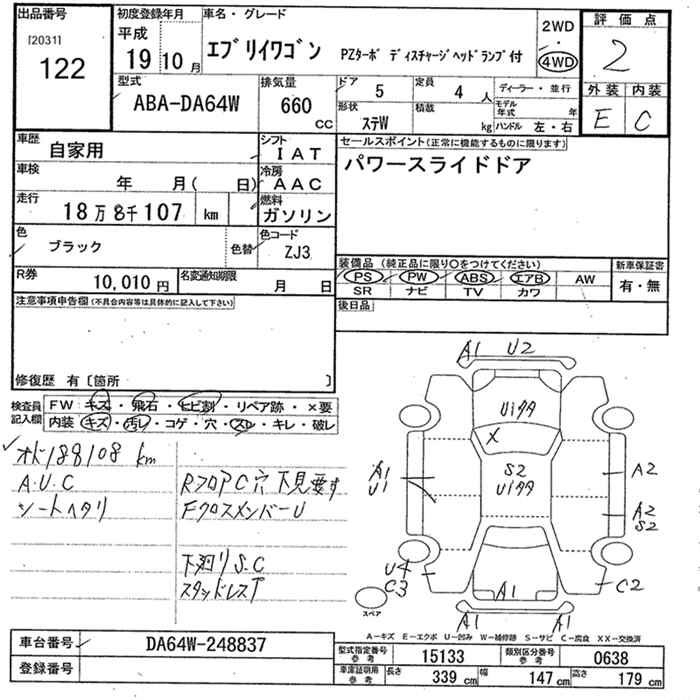 出品番号
[2031]
122
初度登録年月
平成
19年10月
車名・グレード
エブリイワゴン PZターボ ディスチャージヘッドランプ付
2WD
・
4WD
評価点
2
外装 内装
E C
型式
ABA-DA64W
排気量
660
CC
ドア
5
定員
4人
形状
ステW
積載
kg
ディーラー・並行
モデル年式 年
ハンドル 左・右
車歴
自家用
シフト
IAT
車検
年 月( 日)
冷房
AAC
走行
18万8千107 km
燃料
ガソリン
色
ブラック
色替
色コード
ZJ3
R券
10,010円
名変通知期限
月 日
注意事項申告欄(不具合内容等は具体的に記入して下さい)
修復歴 有〔箇所 〕
セールスポイント(正常に機能するものに限ります)
パワースライドドア
装備品(純正品に限り〇をつけてください)
PS PW ABS エアB AW
SR ナビ TV カワ
新車保証書
有・無
後日品
検査員記入欄
FW キズ・飛石・ヒビ割・リペア跡・×要
内装 キズ・汚レ・コゲ・穴・スレ・キレ・破レ
オド188108 km
A.U.C
シートヘタリ
RフロアC穴 下見要す
FクロスメンバーU
下廻りS.C
スタッドレスT
A1 U2
Uイタタ
X
S2
Uイタタ
A1
U1
A2
A2
S2
U4
C3
C2
A1
A1 A1
スペア
A-キズ E-エクボ U-凹み W-補修跡 S-サビ C-腐食 XX-交換済
車台番号
DA64W-248837
登録番号
型式指定番号
参考
15133
類別区分番号
参考
0638
車庫証明用
参考
長さ 339 cm
幅 147 cm
高さ 179 cm